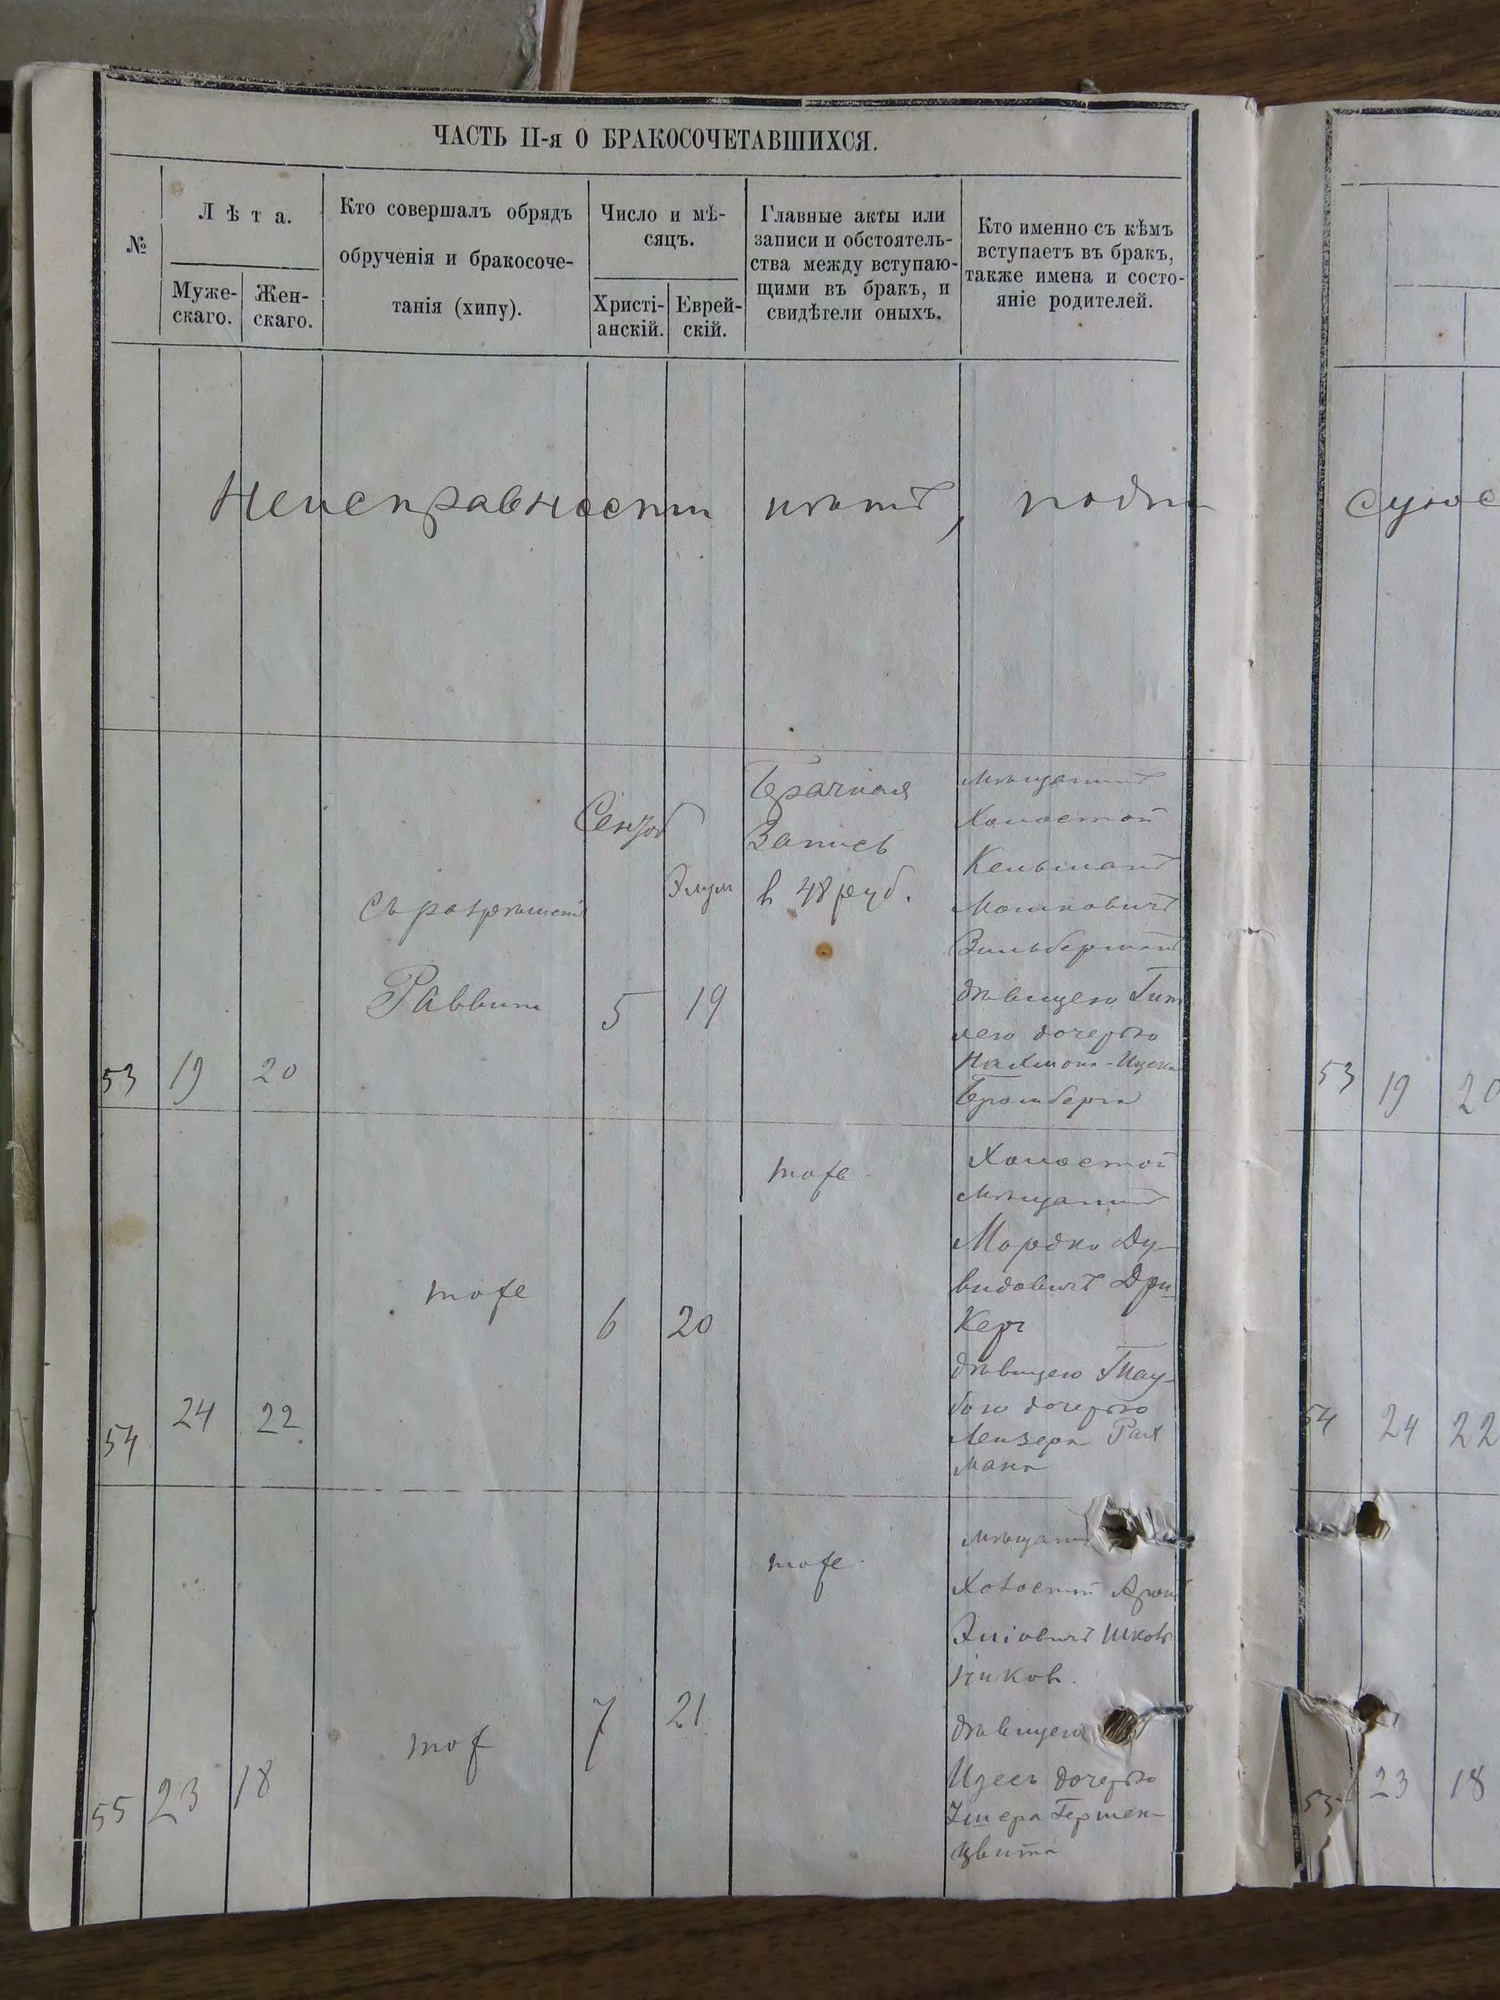 ЧАСТЬ II-я О БРАКОСОЧЕТАВШИХСЯ.
№
Лѣта.
Муже-
скаго.
Жен-
скаго.
Кто совершалъ обрядъ
обрученія и бракосоче-
танія (хипу).
Число и мѣ-
сяцъ.
Христі-
анскій.
Еврей-
скій.
Главные акты или
записи и обстоятель-
ства между вступаю-
щими въ бракъ, и
свидѣтели оныхъ.
Кто именно съ кѣмъ
вступаетъ въ бракъ,
также имена и состо-
яніе родителей.
Неисправности нѣтъ,
53
19
20
Раввин
Сентяб
5
Элул
19
Брачная
Запись
в 48 руб.
мѣщанинъ
Холостой
Кельманъ
Мошковичъ
Зильберманъ
дѣвицею Гит
лею дочерью
Нахмона-Ицека
Бромберга
54
24
22
тоже
6
20
тоже
Холостой
мѣщанинъ
Мордко Ду-
видовичъ Дри-
Кер
дѣвицею Тау-
бою дочерью
Лейзера Рах
мана
55
23
18
тож
7
21
тоже
мѣщан
Холостой Арон
Эліовичъ Школь
ников
дѣвицею
Идесъ дочерью
Ушера Гершен-
цвита
53
19
20
54
24
22
55
23
18